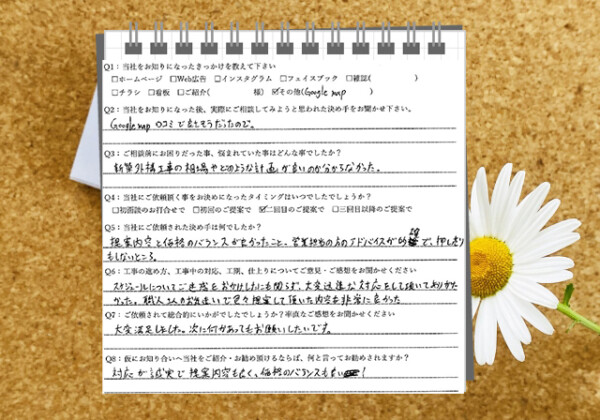 Q1：当社をお知りになったきっかけを教えて下さい
□ホームページ □Web広告 □インスタグラム □フェイスブック □雑誌( )
□チラシ □看板 □ご紹介( 様) ☑その他(Google map )
Q2：当社をお知りになった後、実際にご相談してみようと思われた決め手をお聞かせ下さい。
Google map 口コミで良さそうだったので。
Q3：ご相談前にお困りだった事、悩まれていた事はどんな事でしたか？
新築外構工事の相場やどのような計画が良いのか分からなかった。
Q4：当社にご依頼頂く事をお決めになったタイミングはいつでしたでしょうか？
□初面談のお打合せで □初回のご提案で ☑二回目のご提案で □三回目以降のご提案で
Q5：当社にご依頼された決め手は何でしたか？
提案内容と価格のバランスが良かったこと。営業担当の方のアドバイスが的確で、押し売り
もしないところ。
Q6：工事の進め方、工事中の対応、工期、仕上りについてご意見・ご感想をお聞かせください
スケジュールについてご迷惑をおかけしたにも関らず、大変迅速な対応をして頂いてありがた
かった。職人さんのお気遣いで色々提案して頂いた内容も非常に良かった
Q7：ご依頼されて総合的にいかがでしたでしょうか？率直なご感想をお聞かせください
大変満足しました。次に何かあってもお願いしたいです。
Q8：仮にお知り合いへ当社をご紹介・お勧め頂けるならば、何と言ってお勧めされますか？
対応が誠実で提案内容も良く、価格のバランスも良い！